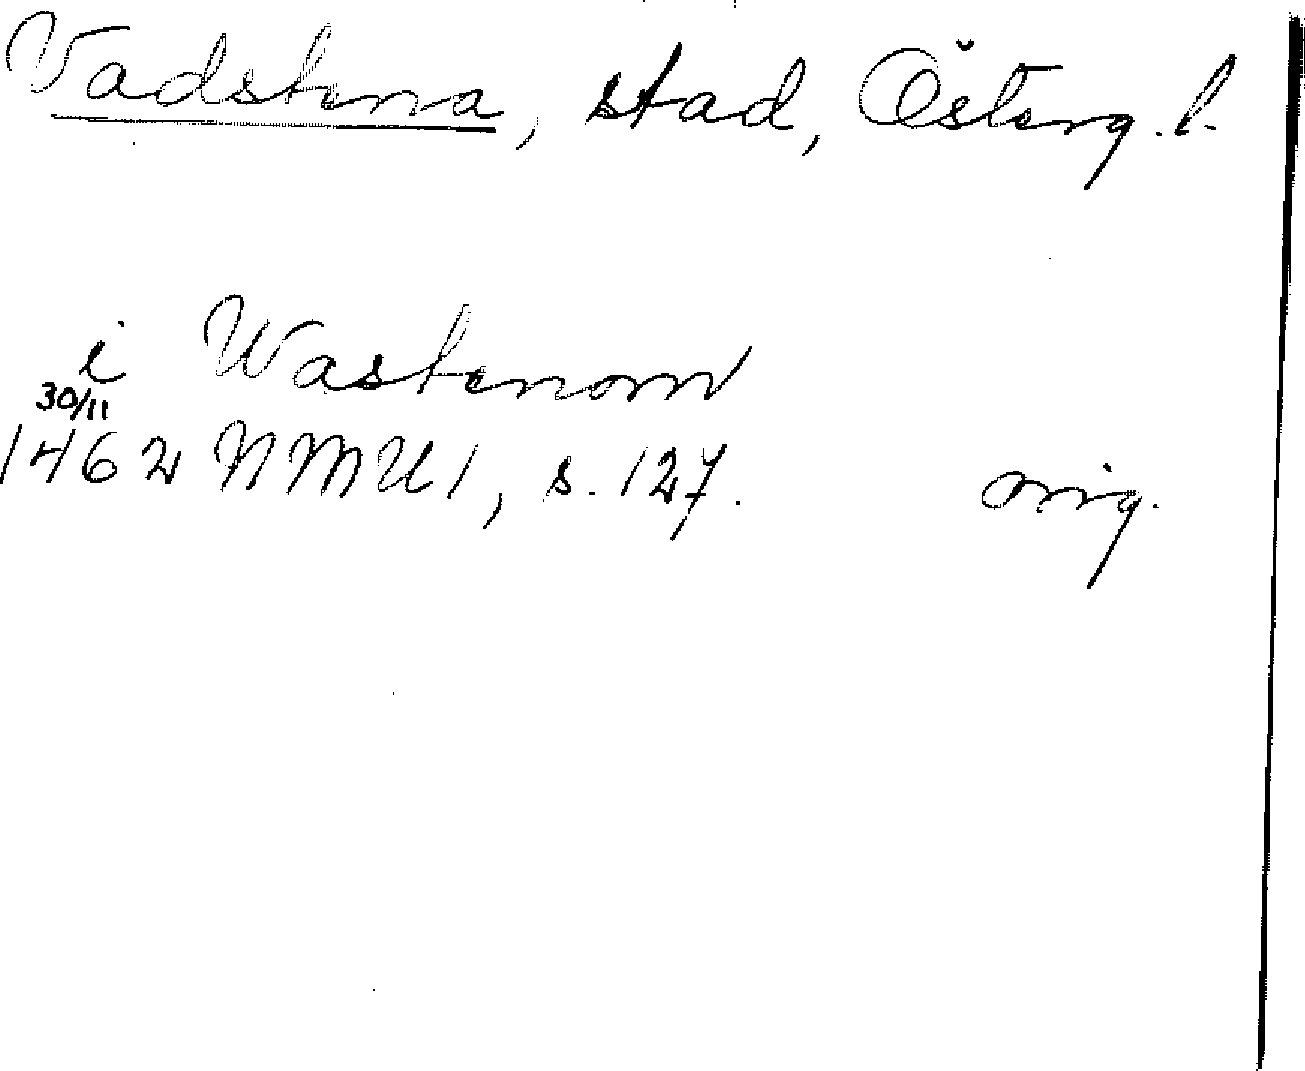 Vadstena, stad, Österg. l.
i Wastenom
30/11
1462 NMU1, s. 127. orig.